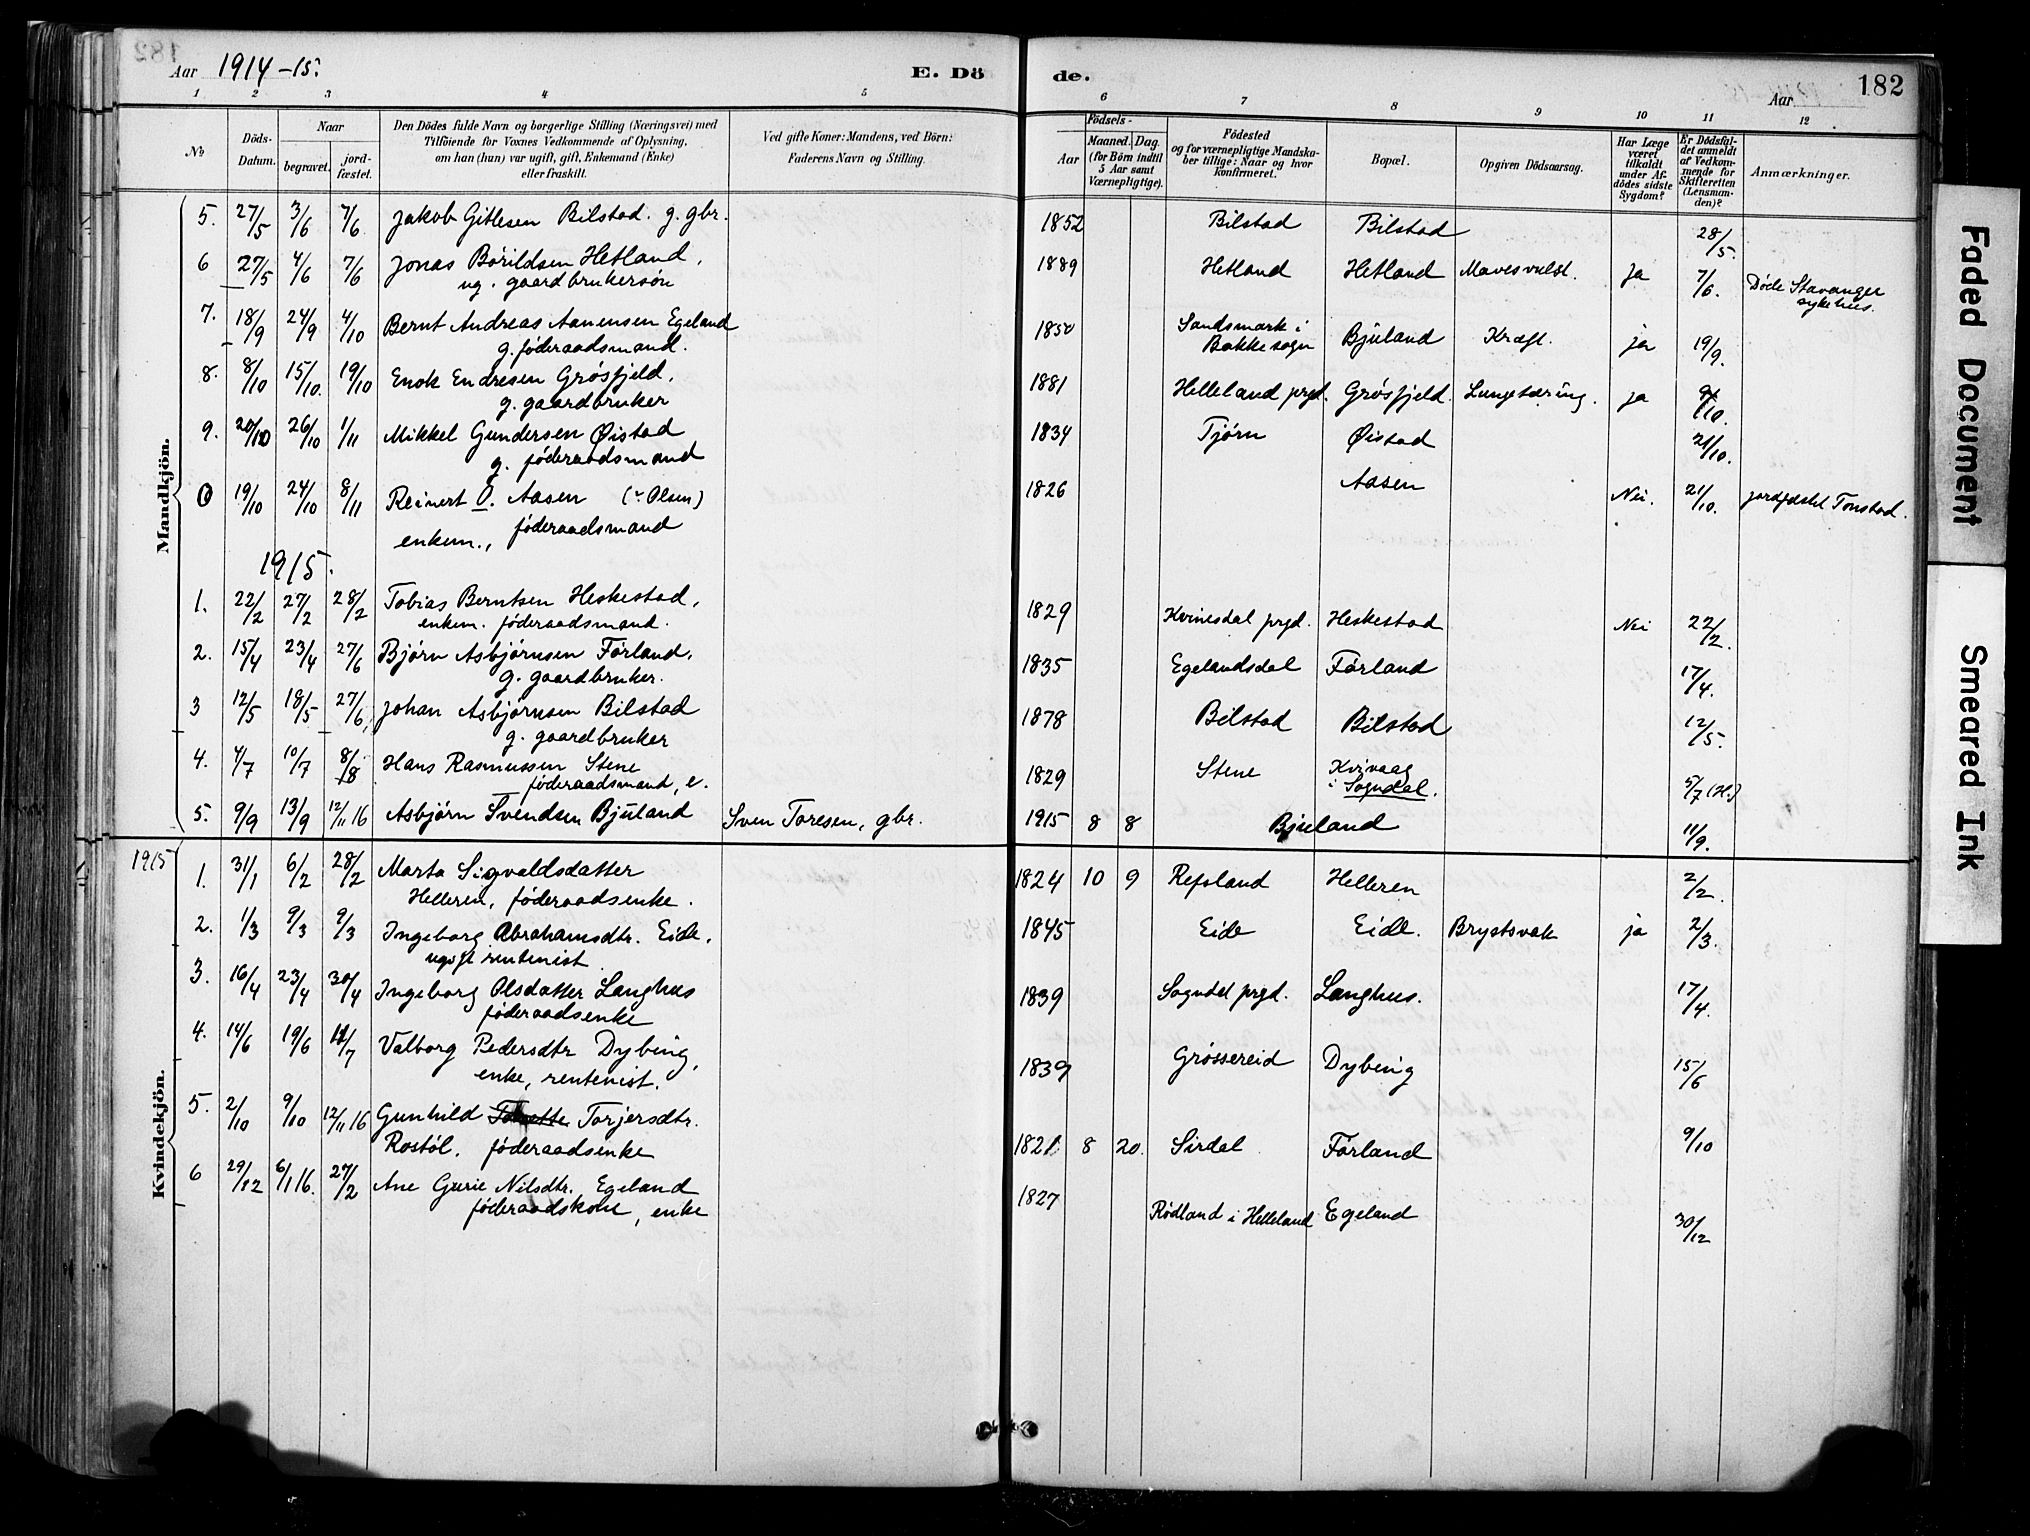 182
Aar 1914-15. E. Dö
1 2 3 4 5
No
Döds-Datum.
Naar
begravet.
jord-fæstet.
Den Dödes fulde Navn og borgerlige Stilling (Næringsvei) med
Tilföiende for Voxnes Vedkommende af Oplysning,
om han (hun) var ugift, gift, Enkemand (Enke)
eller fraskilt.
Ved gifte Koner: Mandens, ved Börn:
Faderens Navn og Stilling.
de. Aar 182
6 7 8 9 10 11 12
Födsels-
Aar
Maaned. Dag.
(for Börn indtil
5 Aar samt
Værnepligtige).
Födested
og for værnepligtige Mandskaber tillige: Naar og hvor konfirmeret.
Bopæl.
Opgiven Dödsaarsag.
Har Læge været tilkaldt under Afdödes sidste Sygdom?
Er Dödsfaldet anmeldt af Vedkommende for Skifteretten (Lensmanden)?
Anmærkninger.
Mandkjön.
5. 27/5 3/6 7/6 Jakob Gitlesen Bilstad. g. gbr. 1852 Bilstad Bilstad 28/5.
6 27/5 4/6 7/6 Jonas Bórildsen Hetland, 1889 Hetland Hetland Mavesvulst. Ja 7/6. Döde Stavanger
ug. gaardbrukersön sykehus.
7. 18/9 24/9 4/10 Bernt Andreas Aanensen Egeland 1850 Sandsmark i Bjuland Kræft. ja 19/9.
g. föderaadsmand. Bakke sogn
8. 8/10 15/10. 19/10 Enok Endresen Grösfjeld, 1881 Helleland prgd. Grösfjeld. Lungetæring. ja 9/10.
g. gaardbruker
9. 20/10 26/10 1/11 Mikkel Gundersen Øistad 1834 Tjörn Øistad 21/10.
g. föderaadsmand
19/10 24/10 8/11 Reinert O. Aasen (: Olsen) 1826 Aasen Nei. 21/10. jordfæstet Tonstad.
enkem., föderaadsmand
1915.
1. 22/2 27/2 28/2 Tobias Berntsen Heskestad, 1829 Kvinesdal prgd. Heskestad Nei 22/2.
enkem. föderaadsmand.
2. 15/4 23/4 27/6 Björn Asbjörnsen Förland, 1835 Egelandsdal Förland 17/4.
g. gaardbruker.
3 12/5 18/5 27/6, Johan Asbjörnsen Bilstad 1878 Bilstad Bilstad 12/5.
g. gaardbruker
4. 4/7 10/7 8/8 Hans Rasmussen Stene 1829 Stene Kvivaag 5/7 (H.)
föderaadsmand, e. i Sogndal.
5. 9/9 13/9 12/11 16 Asbjörn Svendsen Bjuland Sven Toresen, gbr. 1915 8 8 Bjuland 11/9.
Kvindekjön.
1915
1. 31/1 6/2 28/2 Marta Sigvaldsdatter 1824 10 9 Refsland Helleren 2/2.
Helleren, föderaadsenke.
2. 1/3 9/3 9/3 Ingeborg Abrahamsdtr. Eide, 1845 Eide Eide. Brystsvak ja 2/3.
ugift rentenist
3. 16/4 23/4 30/4 Ingeborg Olsdatter Langhus 1839 Sogndal prgd. Langhus. 17/4.
föderaadsenke
4. 14/6 19/6 11/7 Valborg Pedersdtr Dybing, 1839 Grössereid Dybing 15/6
enke, rentenist.
5. 2/10 9/10 12/11 16 Gunhild Torjersdtr. 1821 8 20. Sirdal Förland 9/10
Rostöl. föderaadsenke
6 29/12 6/1 16. 27/2 Ane Gurie Nilsdtr. Egeland 1827 Rödland i Helleland Egeland 30/12
föderaadskone, enke
Faded Document
Smeared Ink